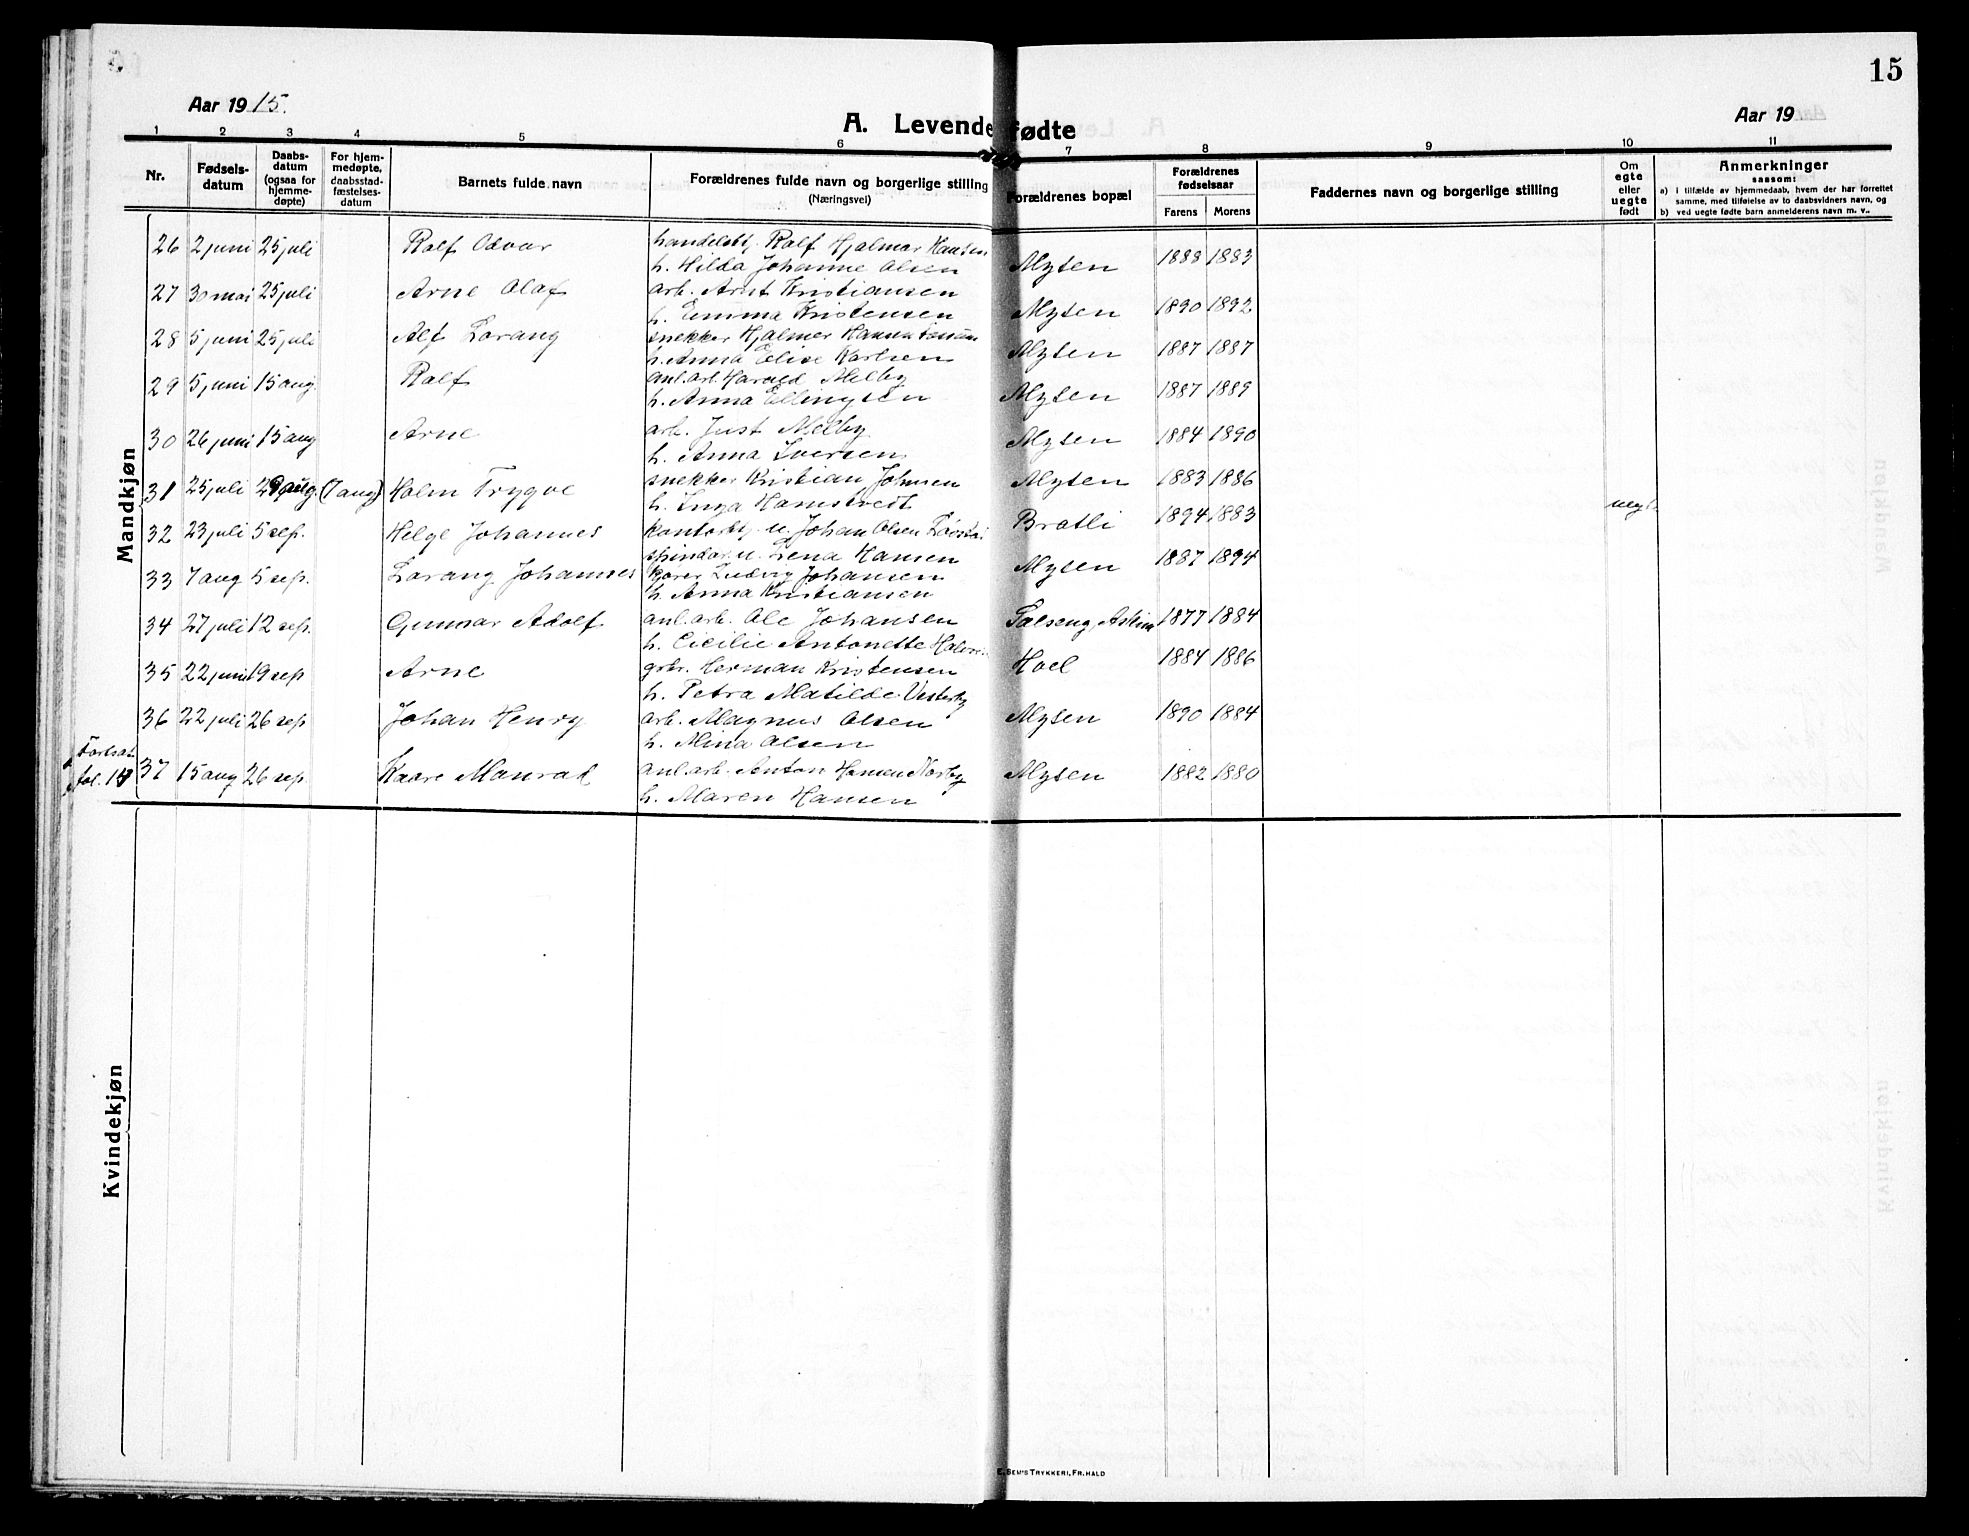 15
Aar 19 15.
A. Levendefødte
Aar 19
1 2 3 4 5 6 7 8 9 10 11
Nr.
Fødsels-
datum
Daabs-
datum
(ogsaa for
hjemme-
døpte)
For hjem-
medøpte,
daabsstad-
fæstelses-
datum
Barnets fulde navn
Forældrenes fulde navn og borgerlige stilling
(Næringsvei)
Forældrenes bopæl
Forældrenes
fødselsaar
Farens Morens
Faddernes navn og borgerlige stilling
Om
egte
eller
uegte
født
Anmerkninger
saasom:
a) i tilfælde av hjemmedaab, hvem der har forrettet
samme, med tilføielse av to daabsvidners navn, og
b) ved uegte fødte barn anmelderens navn m. v.
Mandkjøn
26 2 juni 25 juli Rolf Odvar handelsbtj. Rolf Hjalmar Hansen Mysen 1888 1883
h. Hilda Johanne Olsen
27 30 mai 25 juli Arne Olaf arb. Arnt Kristiansen Mysen 1890 1892
h. Emma Kristensen
28 5 juni 25 juli Alf Lorang snekker Hjalmer Hansen Mysen 1887 1887
h. Anna Elise Karlsen
29 5 juni 15 aug. Rolf anl.arb. Harald Melby Mysen 1887 1889
h. Anna Ellingsen
30 26 juni 15 aug Arne arb. Just Melby Mysen 1884 1890
h. Anna Iversen
31 25 juli 29 aug. (7 aug) Holm Trygve snekker Kristian Johnsen Mysen 1883 1886
h. Inga Hamstvedt
32 23 juli 5 sep. Helge Johannes kontorbtj. u. Johan Olsen Bratli 1894 1883 uegte
spinder. u. Lena Hansen
33 7 aug 5 sep. Lorang Johannes kører Ludvig Johansen Mysen 1887 1894
h. Anna Kristiansen
34 27 juli 12 sep. Gunnar Adolf anl.arb. Ole Johansen Askim 1877 1884
h. Cicilie Antonette
35 22 juni 19 sep Arne grbr. Herman Kristensen Hoel 1884 1886
h. Petra Matilde Vesterby
36 22 juli 26 sep Johan Henry arb. Magnus Olsen Mysen 1890 1884
h. Mina Olsen
Fortsat
fol. 17 37 15 aug 26 sep. Kaare Manrad anl.arb. Anton Hansen Norby Mysen 1882 1880
h. Maren Hansen
Kvindekjøn
E. Sem's Trykkeri, Fr.hald